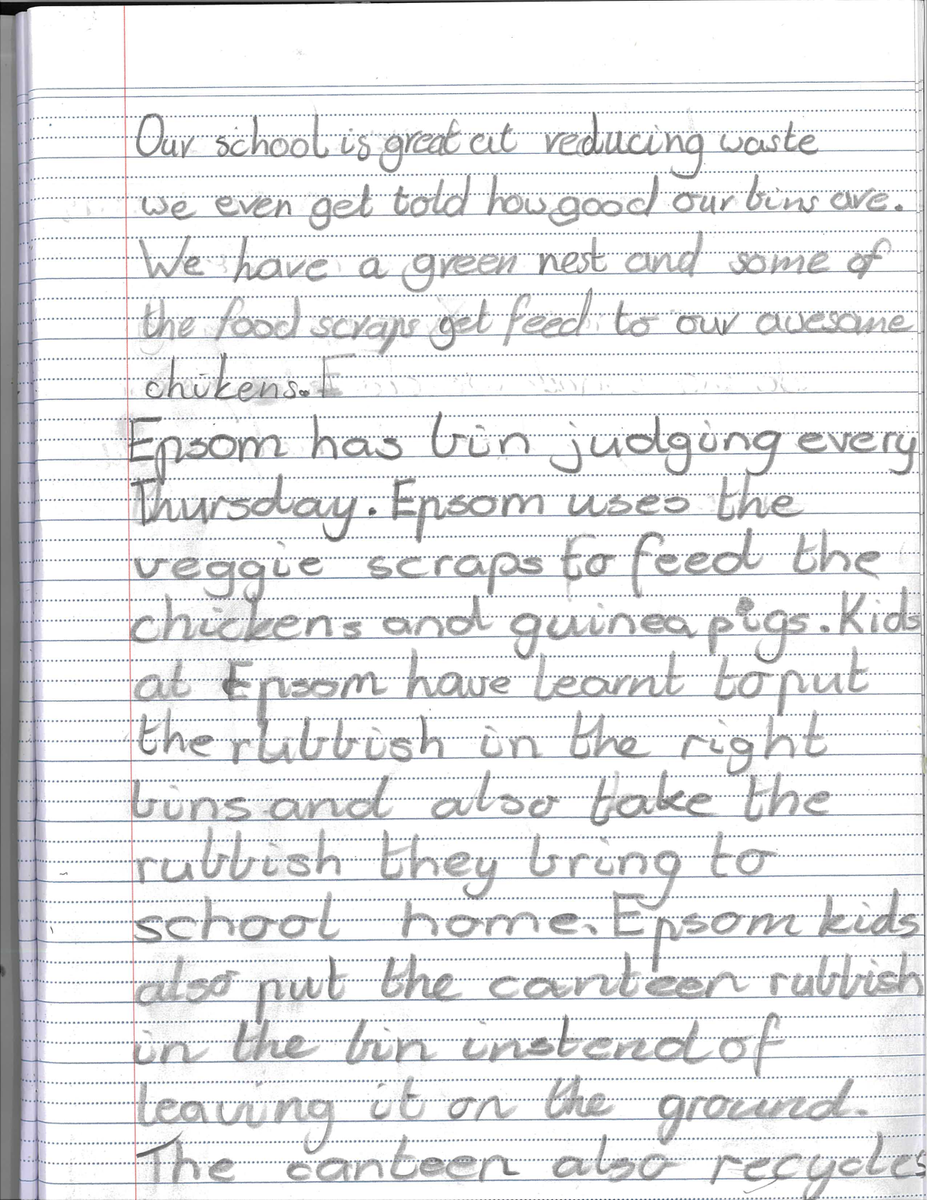 Our school is great at reducing waste
we even get told how good our bins are.
We have a green nest and some of
the food scraps get feed to our awesome
chikens. E
Epsom has bin judging every
Thursday. Epsom uses the
veggie scraps to feed the
chickens and guinea pigs. Kids
at Epsom have learnt to put
the rubbish in the right
bins and also take the
rubbish they bring to
school home. Epsom kids
also put the canteen rubbish
in the bin instend of
leaving it on the ground.
The canteen also recycles